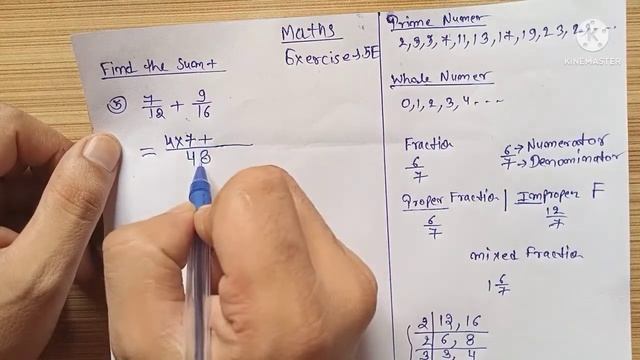 Maths
Exercise 5E
Find the Sum
7/12 + 9/16
= 4x7+ / 48
Prime Numer
2, 3, 5, 7, 11, 13, 17, 19, 23, 2
Whole Numer
0, 1, 2, 3, 4 ...
Fraction
6/7
6 → Numerator
7 → Denominator
Proper Fraction | Improper F
6/7
12/7
mixed fraction
1 6/7
2 | 12, 16
2 | 6, 8
3 | 3, 4
KINEMASTER